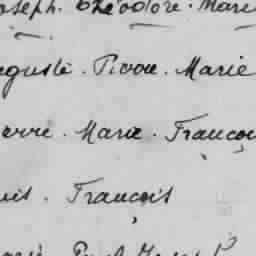 oseph. Théodore. Marie
uguste. Pierre. Marie
ierre. Marie. Françoi
uis. François